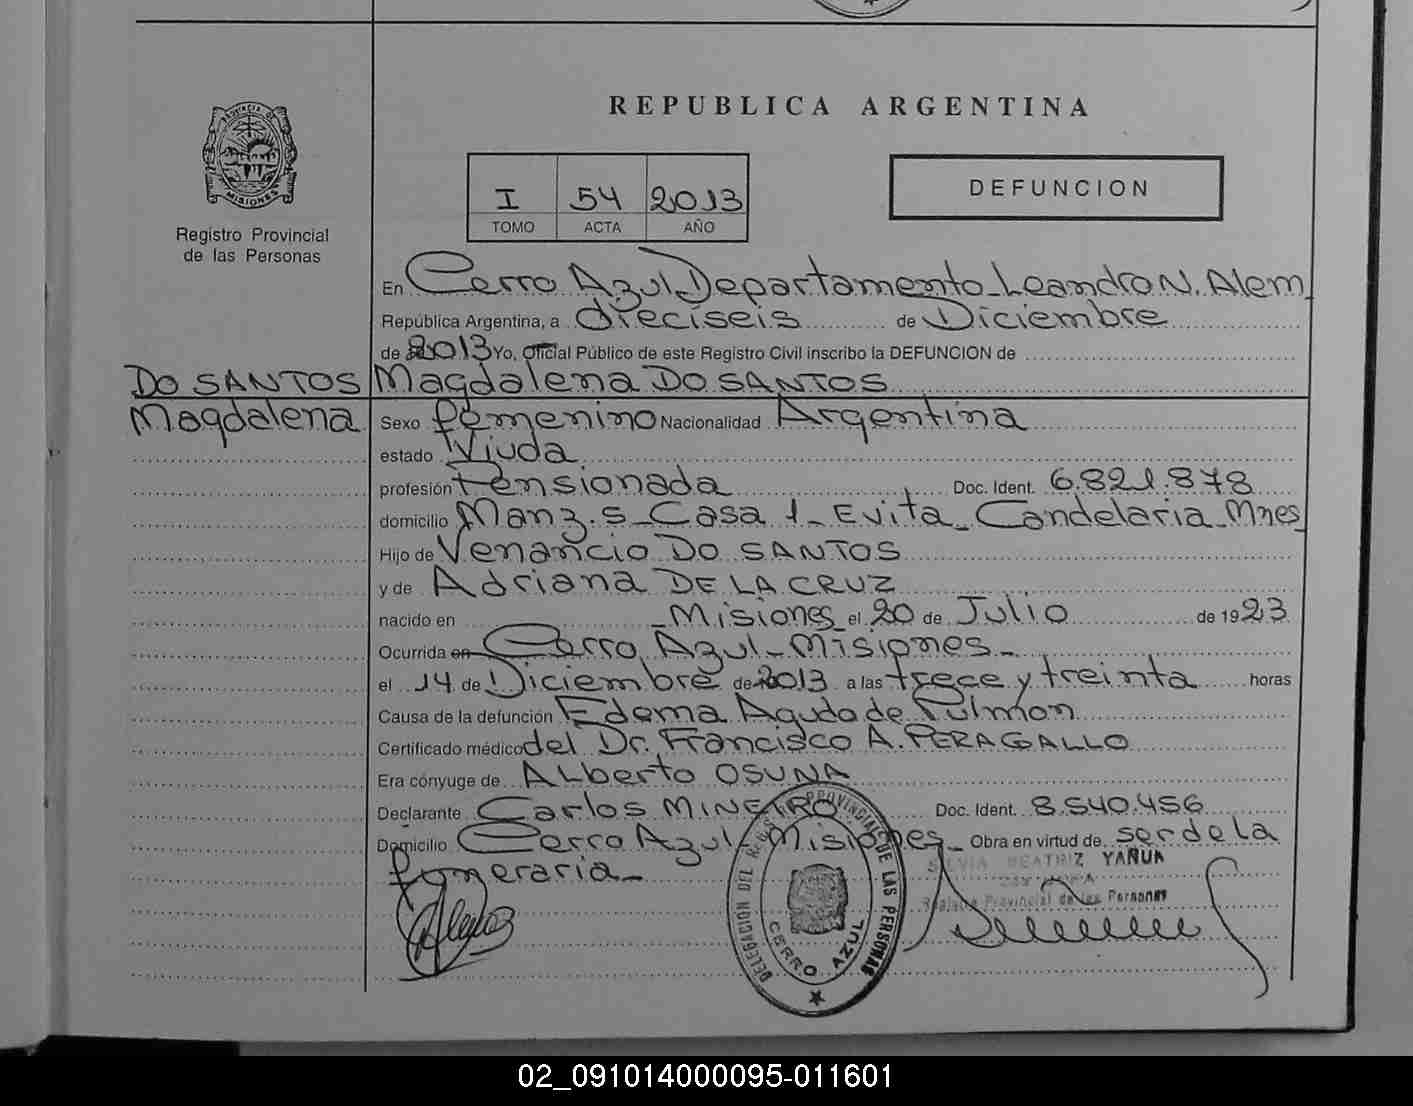 PROVINCIA DE
MISIONES
Registro Provincial
de las Personas
REPUBLICA ARGENTINA
I 54 2013
TOMO ACTA AÑO
DEFUNCION
En Cerro Azul Departamento Leandro N. Alem
República Argentina, a dieciseis de Diciembre
de 2013 Yo, Oficial Público de este Registro Civil inscribo la DEFUNCION de
DO SANTOS Magdalena DO SANTOS
Magdalena Sexo femenino Nacionalidad Argentina
estado Viuda
profesión Pensionada Doc. Ident. 6.821.878
domicilio Manz. 5 - Casa 1 - Evita - Candelaria - Mnes
Hijo de Venancio DO SANTOS
y de Adriana DE LA CRUZ
nacido en - Misiones el 20 de Julio de 1923
Ocurrida en Cerro Azul - Misiones -
el 14 de Diciembre de 2013 a las trece y treinta horas
Causa de la defunción Edema Agudo de Pulmon
Certificado médico del Dr. Francisco A. PERAGALLO
Era cónyuge de Alberto OSUNA
Declarante Carlos MINEIRO Doc. Ident. 8.540.456
Domicilio Cerro Azul - Misiones - Obra en virtud de ser de la
funeraria -
SILVIA BEATRIZ YAÑUK
Registro Provincial de las Personas
DELEGACION DEL REGISTRO PROVINCIAL DE LAS PERSONAS
CERRO AZUL
02_091014000095-011601